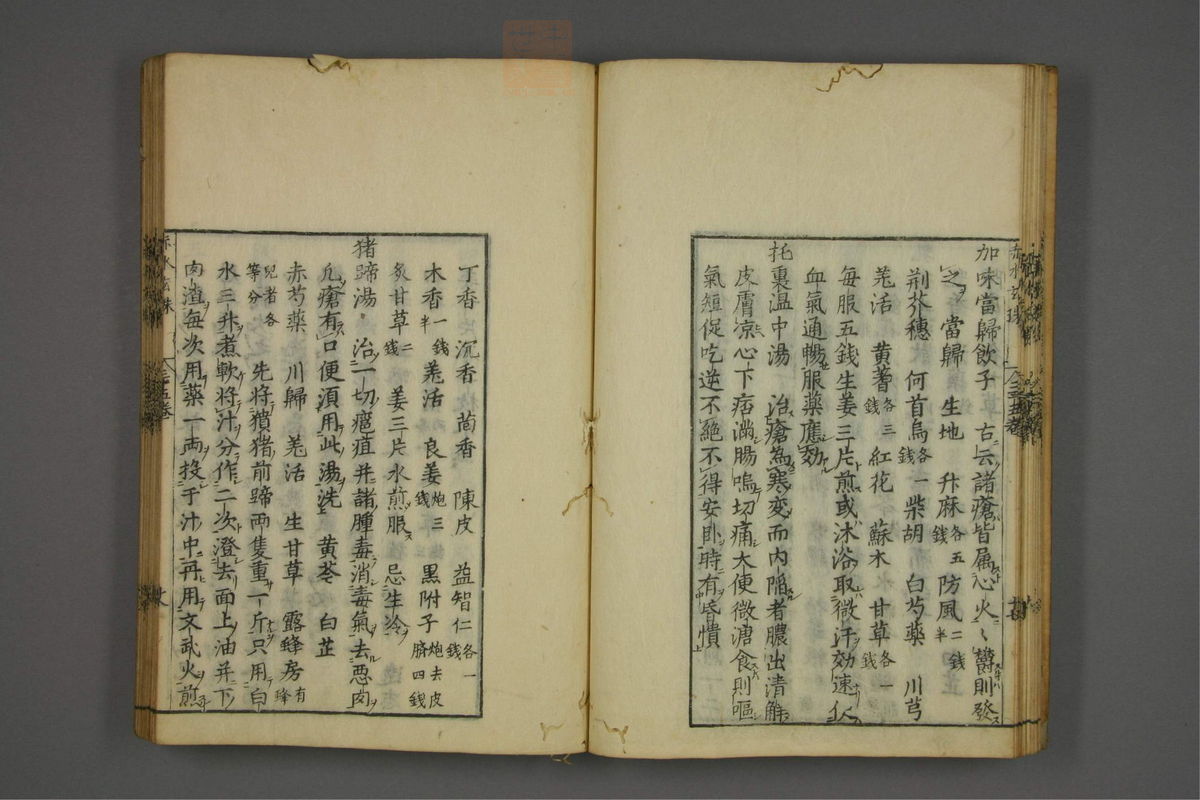 加味當歸飲子 古云諸瘡皆属心火〻欝則發
之 當歸 生地 升麻各五錢 防風二錢半
荆芥穗 何首烏各一錢 柴胡 白芍藥 川芎
羗活 黄蓍各三錢 紅花 蘇木 甘草各一錢
毎服五錢生姜三片煎或沐浴取微汗効速
血氣通暢服藥應効
托裏温中湯 治瘡為寒変而内陥者膿出清觧
皮膚凉心下痞満腸鳴切痛大便微溏食則嘔
氣短促吃逆不絶不得安卧時有昏憒
丁香 沉香 茴香 陳皮 益智仁各一錢
木香一錢半 羗活 良姜炮三錢 黒附子炮去皮臍四錢
炙甘草二錢 姜三片水煎服 忌生冷
猪蹄湯 治一切癰疽并諸腫毒消毒氣去悪肉
凢瘡有口便湏用此湯洗 黄芩 白芷
赤芍藥 川歸 羗活 生甘草 露蜂房有蜂
兒者各等分 先將猪前蹄兩隻重一斤只用白
水三升煮軟將汁分作二次澄去面上油并下
肉渣每次用藥一両投于汁中再用文武火煎